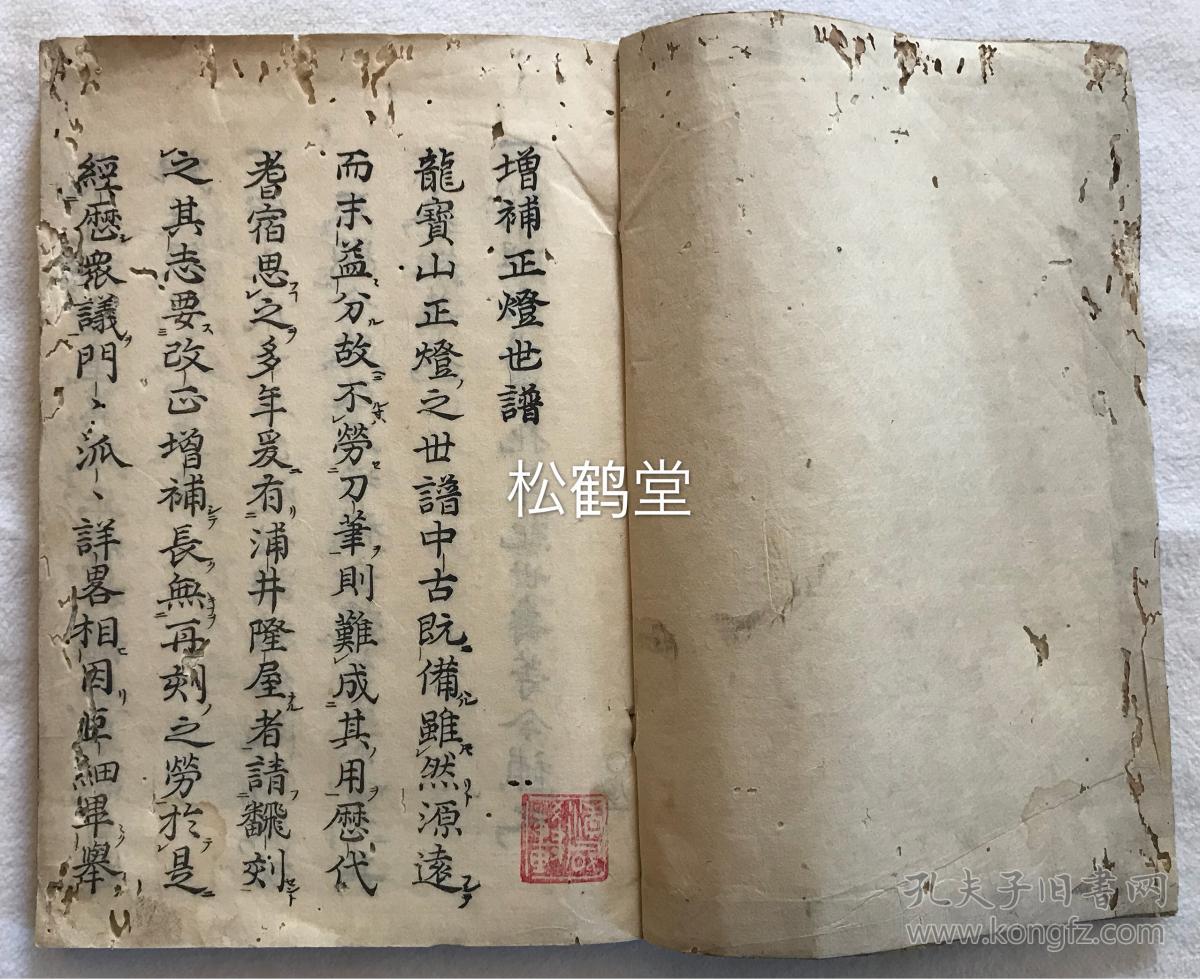 増補正燈世譜
龍寶山正燈之世譜中古既備雖然源遠
而末益分故不勞刀筆則難成其用歴代
耆宿思之多年爰有浦井隆屋者請飜刻
之其志要改正増補長無再刻之勞於是
經歴衆議門〻派〻詳畧相因 細畢舉
松鹤堂
孔夫子旧书网
www.kongfz.com